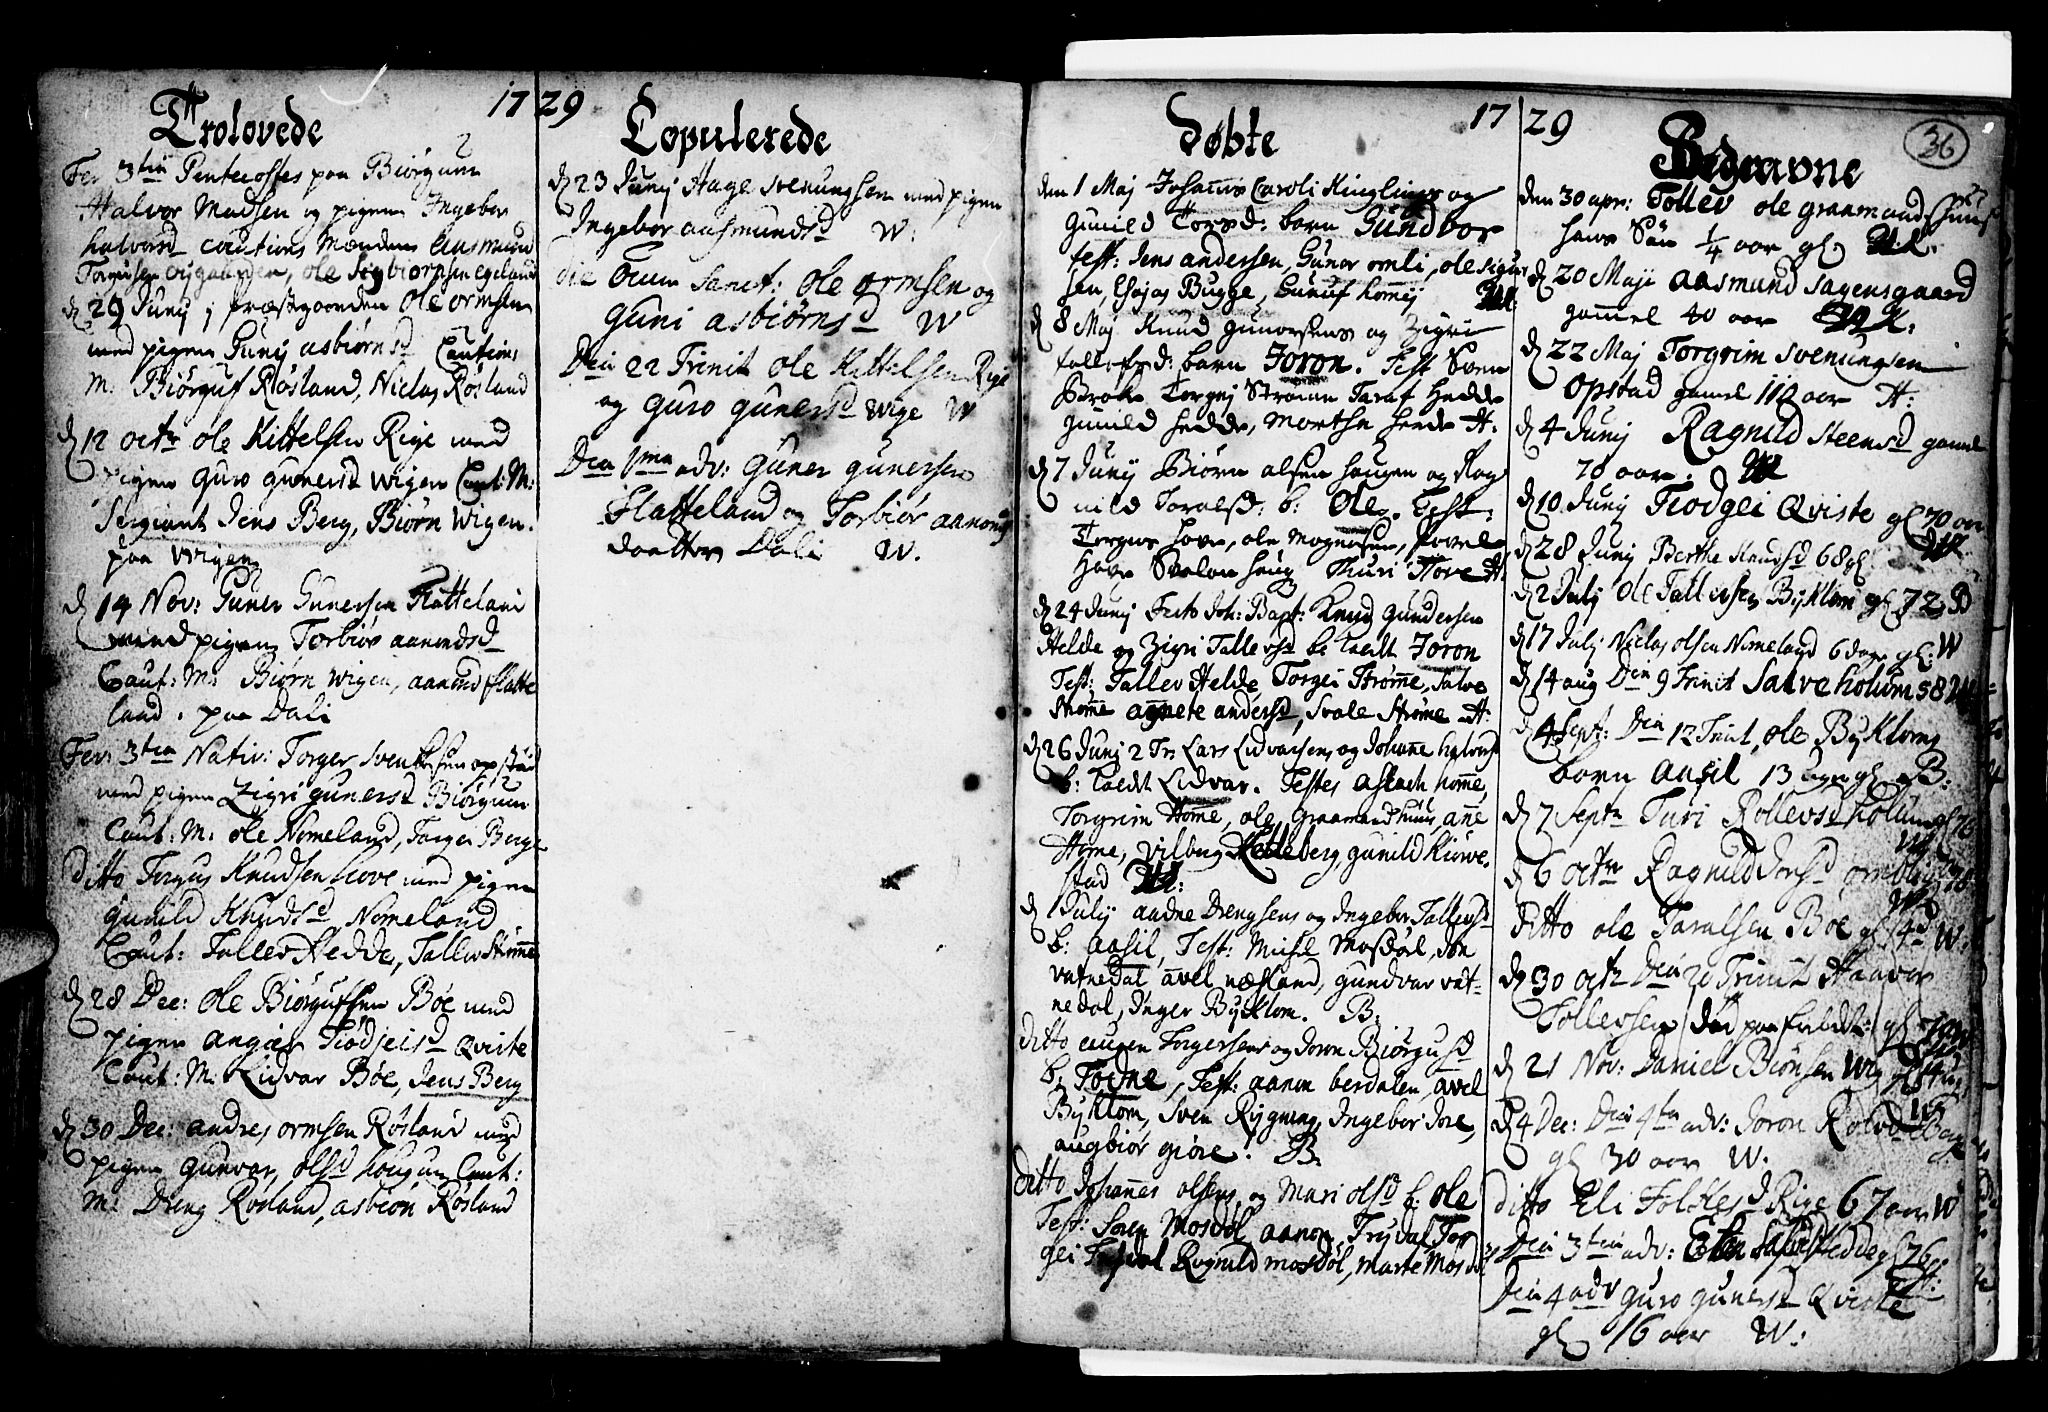 1729
Trolovede
Fer 3tia Pentecostes paa Biørgum
Halvor Madsen og pigen Ingebor
halvorsd cautions Mændene Aasmund
Torgrusen nygaarden, ole Sigbiørnsen Egeland
d 29 Junij j præstegaarden Ole Ormsen
med pigen Guni asbiørnsd Cautions
M: Biørguf Røsland, Niclas Røsland
d 12 octr ole Kittelsen Rige med
pigen Guro gunersd wigen Caut: M:
Sergiant Jens Berg, Biørn Wigen.
paa Wigen
d 14 Nov: Guner Gunersen Flatteland
med pigen Torbiør aanondsd
Caut: M: Biørn Wigen, aanund flatte
land. paa Dali
Fer: 3tia Nativ: Torger Svenungsen opstad
med pigen Zigri gunersd Biørgum
Caut: M: ole Nomeland, Torger Berge
Ditto Torgus Knudsen Hove med pigen
gunild Knudsd Nomeland
Caut: Tallev Hedde, Tallev Strømme
d 28 Dec: Ole Biørgufsen Bøe med
pigen angier Tiødgeisd Qviste
Caut: M: Lidvar Bøe, Jens Berg
d 30 Dec: andres ormsen Røsland med
pigen gunvor olsd Hougum Caut:
M: Dreng Røsland, asbiørn Røsland
Copulerede
d 23 Junij Aage Svenungsen med pigen
Ingebor aasmundsd W:
die Omn Sanct: Ole Ormsen og
Guni asbiørnsd W
Dca 22 Trinit Ole Kittelsen Rige
og Guro gunersd Wige W
Dca 1ma adv: Guner gunersen
Flatteland og Torbiør aanonds
daatter Dali W.
1729
Døbte
den 1 Maj Johannis Caroli Kinglings og
Gunild Torsd: barn Gundbor
test: Jens andersen, Guner omli, ole Sigur
sen, Esajas Bugge, homej
d 8 Maj Knud gunersens og Zigri
tallefsd: barn Joron. Test Sven
Brok Torgej Strømme Taraf Hedde
gunild Hedde, Marthe Hedde H.
d 7 Junij Biørn alsen haugen og Rag
nild Toralsd: b: Ole. Test:
Torgus hove, ole Mognesen,
Hove Svalou haug Thuri Hove H.
d 24 Junij Festo Joh: Bapt: Knud Gundersen
Helde og Zigri Tallevsd b: kaldt Joron
Test: Tallev Helde, Torgei Strømme, Salve
Strømme agnete andersd, Svale Strømme H:
d 26 Junij 2 Tr: Lars Lidvarsens og Johanne halvorsd
b: kaldt Lidvar. Testes aslach homme,
Torgrim Homme, ole Graamandshuus, ane
Home, Vilbug Kelleberg, gunild Kiørve
stad
d 1 July aadne Drengsens og Ingebor Tallevsd
b: aasil, Test: Michel Mosdøl, Jon
vatnedal avel næsland, gundvor vat-
nedol, Inger Byklom. B:
Ditto augen Torgersens og Joron Biørgusd
b: Todne, Test: aanon berdalen, avel
Byklom, Sven Rygnæng, Ingebor Jore,
augbiør giøre! B.
Ditto Johannes olsens og Mari olsd b: ole
Test: Soren Mosdøl aanon Trydal Tor
gei Trydal Ragnild mosdøl, marte Mosdøl
36
Begravne
den 30 apr: Tollev ole graamands huus
hans Søn 1/4 aar gl
d 20 Maji aasmund Sagensgaard
gammel 40 aar
d 22 Maj Torgrim Svenungsen
Opstad gamel 110 aar H:
d 4 Junij Ragnild Steensd gamel
70 aar.
d 10 Junij Tiodgei Qviste gl 70 aar
d 28 Junij Berthe Knudsd 68 gl.
d 2 Julj Ole Tallevsen Byklom gl 72 B
d 17 Julj Niclas olsen Nomeland 6 dage gl: W
d 14 aug Dca 9 Trinit Salve holum 58
d 4 Sept: Dca 12 Trinit, ole Bykloms
barn aasil 13 uger gl B:
d 7 Septr Turi Rollevsd holum gl 76
d 6 octr Ragnild Jorsd
Ditto ole Taralsen Bøe gl 14 d W:
d 30 octr Dca 20 Trinit Haavor
Tollevsen død paa fieldet: gl
d 21 Nov: Daniel Biønsen Wig
d 4 Dec: Dca 4ta adv: Joron Rolvsd
gl 30 aar W.
Ditto Eli Folkesd Rige 67 aar W
Dca 3tia adv: Hedde gl 76
Dca 4 adv Guro gunersd Qviste
gl 16 aar W: